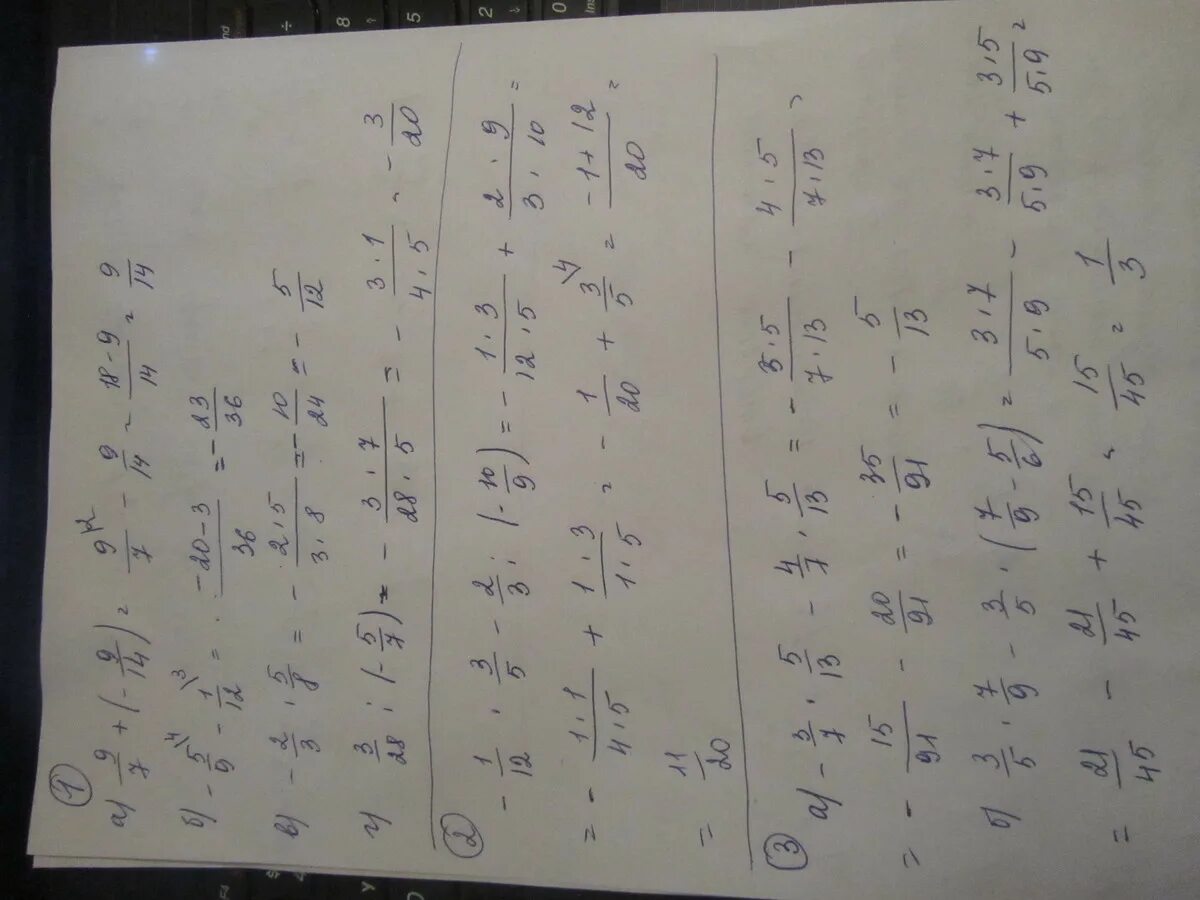 1
а) 9/7 + (- 9/14) = 9\2/7 - 9/14 = 18-9/14 = 9/14
б) - 5\4/9 - 1\3/12 = -20-3/36 = - 23/36
в) - 2/3 · 5/8 = - 2·5/3·8 = - 10/24 = - 5/12
г) 3/28 : (- 5/7) = - 3·7/28·5 = - 3·1/4·5 = - 3/20
2
- 1/12 · 3/5 - 2/3 : (- 10/9) = - 1·3/12·5 + 2·9/3·10 =
= - 1·1/4·5 + 1·3/1·5 = - 1/20 + 3\4/5 = -1+12/20 =
= 11/20
3
а) - 3/7 · 5/13 - 4/7 · 5/13 = - 3·5/7·13 - 4·5/7·13 =
= - 15/91 - 20/91 = - 35/91 = - 5/13
б) 3/5 · 7/9 - 3/5 · (7/9 - 5/6) = 3·7/5·9 - 3·7/5·9 + 3·5/5·9 =
= 21/45 - 21/45 + 15/45 = 15/45 = 1/3
8
5
2
0